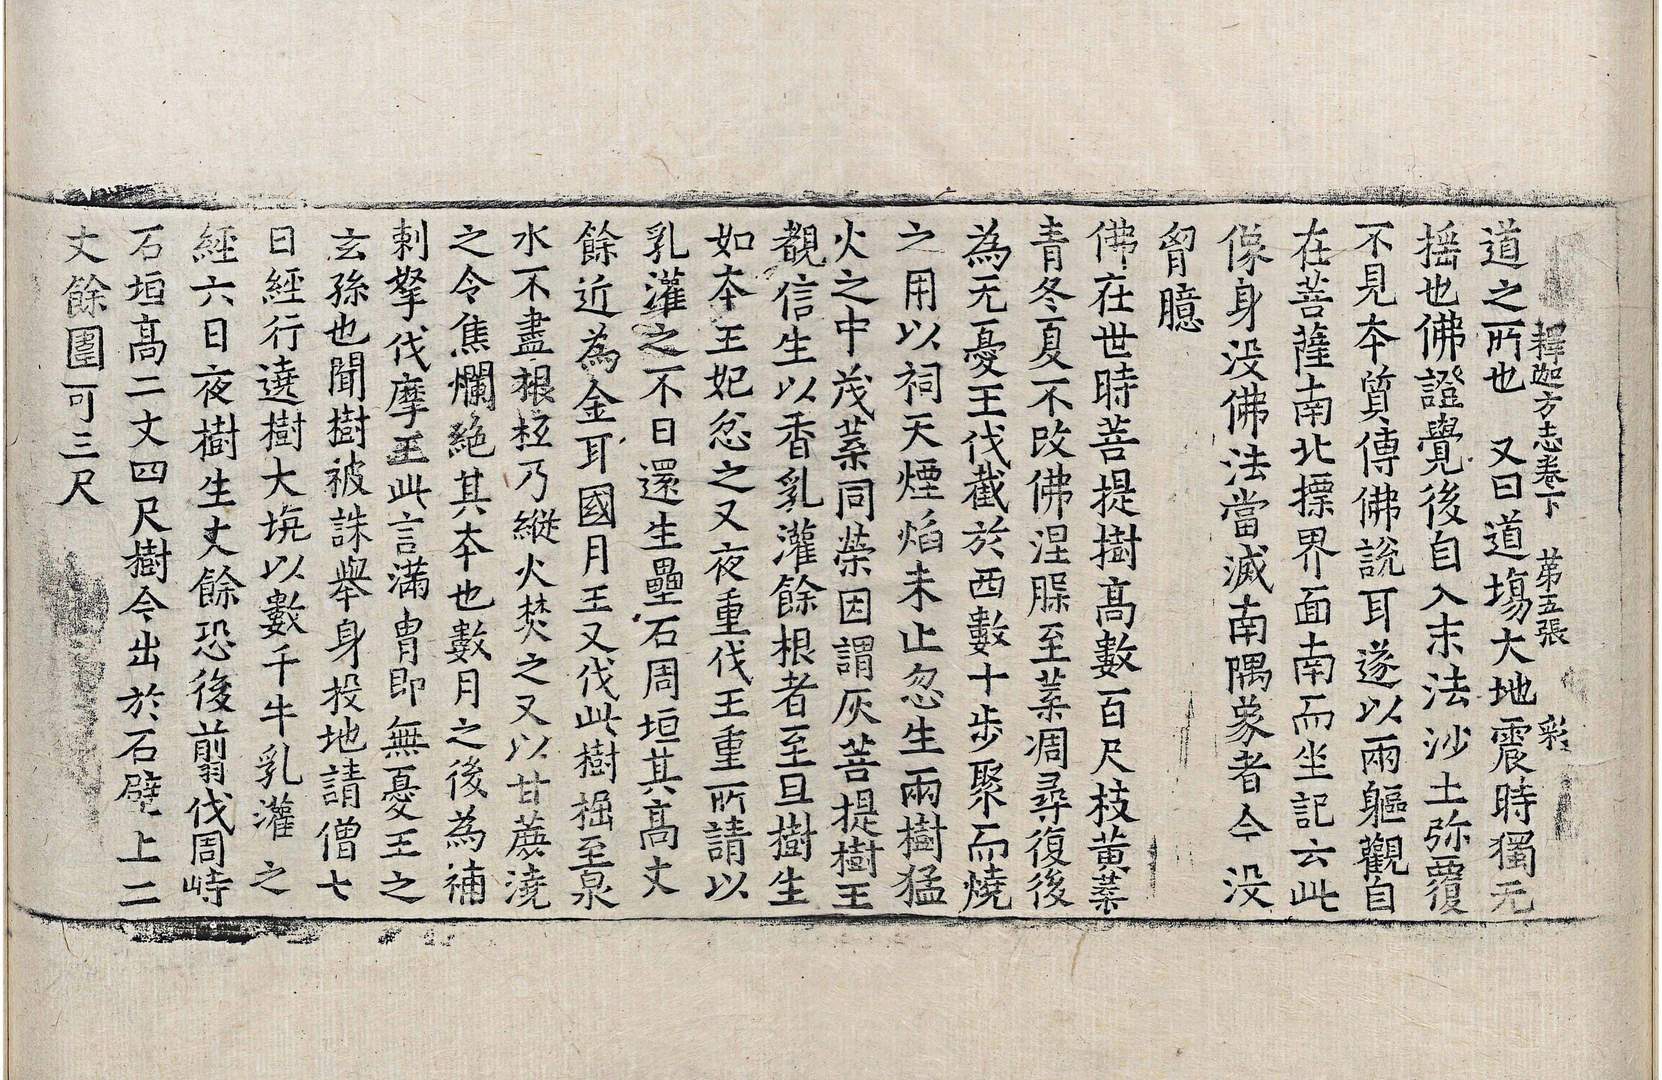 釋迦方志卷下　第五張　彩
道之所也　又曰道塲大地震時獨无
揺也佛證覺後自入末法沙土弥覆
不見本質傳佛說耳遂以兩軀觀自
在菩薩南北摽界面南而坐記云此
像身没佛法當滅南隅㒵者今没
胷臆
佛在世時菩提樹髙數百尺枝黄葉
青冬夏不改佛涅槃至葉凋尋復後
為无憂王伐截於西數十步聚而燒
之用以祠天煙焰未止忽生兩樹猛
火之中茂葉同榮因謂灰菩提樹王
覩信生以香乳灌餘根者至旦樹生
如本王妃忿之又夜重伐王重所請以
乳灌之不日還生壘石周垣其髙丈
餘近為金耳國月王又伐此樹掘至泉
水不盡根柢乃縱火焚之又以甘蔗澆
之令焦爛絶其本也數月之後為補
剌拏伐摩王此言滿胄即無憂王之
玄孫也聞樹被誅舉身投地請僧七
日經行遶樹大坑以數千牛乳灌之
經六日夜樹生丈餘恐後翦伐周峙
石垣髙二丈四尺樹今出於石壁上二
丈餘圍可三尺